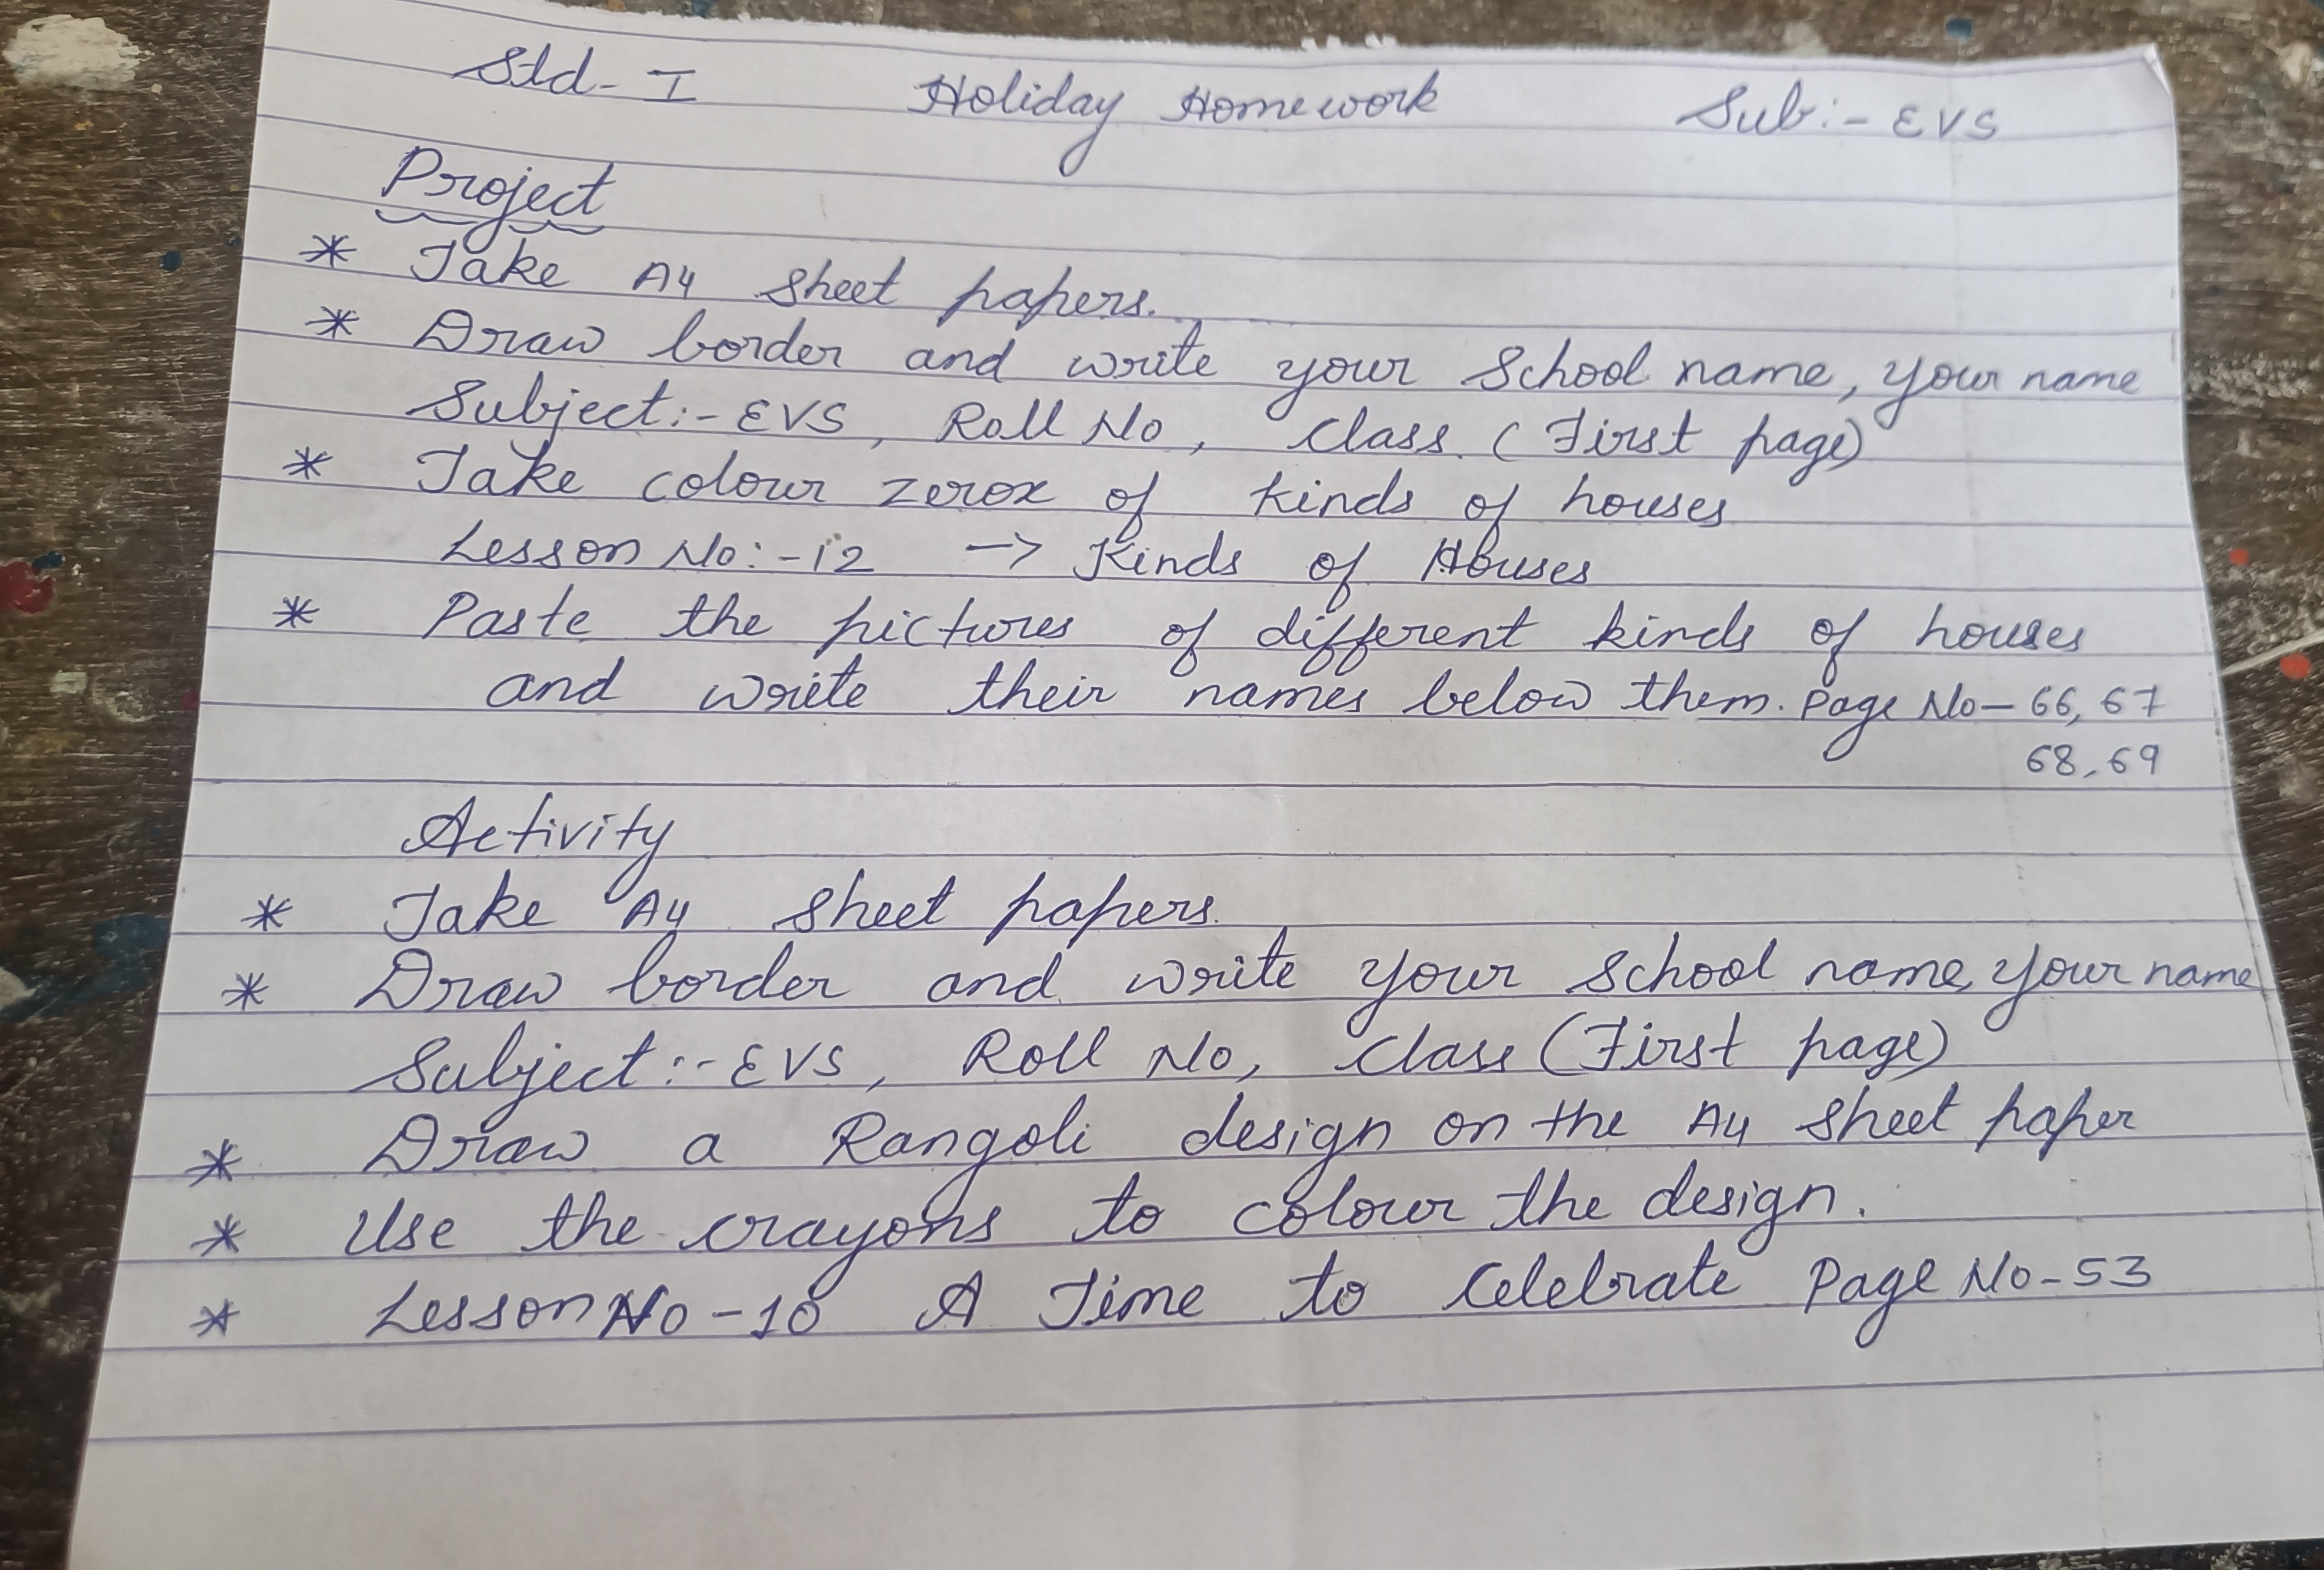 Std- I Holiday Homework Sub:- EVS
Project
* Take A4 sheet papers.
* Draw border and write your School name, your name
Subject:- EVS, Roll No, Class. (First page)
* Take colour zerox of kinds of houses
Lesson No:-12 -> Kinds of Houses
* Paste the pictures of different kinds of houses
and write their names below them. Page No- 66, 67
68, 69
Activity
* Take A4 sheet papers.
* Draw border and write your School name, your name
Subject:- EVS, Roll No, Class (First page)
* Draw a Rangoli design on the A4 sheet paper
* Use the crayons to colour the design.
* Lesson No -10 A Time to Celebrate Page No-53